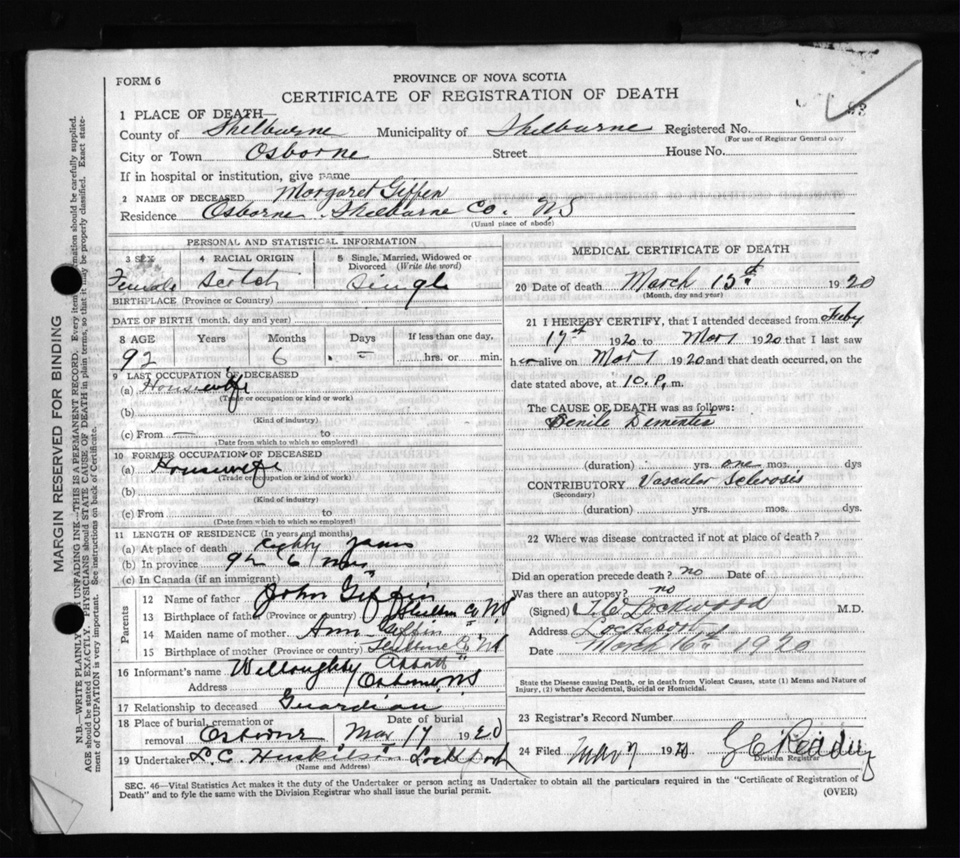 FORM 6
PROVINCE OF NOVA SCOTIA
CERTIFICATE OF REGISTRATION OF DEATH
1 PLACE OF DEATH
County of Shelburne Municipality of Shelburne Registered No.
(For use of Registrar General only)
City or Town Osborne Street House No.
If in hospital or institution, give name
2 NAME OF DECEASED Margaret Giffen
Residence Osborne Shelburne Co. N.S
(Usual place of abode)
PERSONAL AND STATISTICAL INFORMATION
3 SEX 4 RACIAL ORIGIN 5 Single, Married, Widowed or Divorced (Write the word)
Female Scotch Single
BIRTHPLACE (Province or Country)
DATE OF BIRTH (month, day and year)
8 AGE Years Months Days If less than one day,
92 6 - hrs. or min.
9 LAST OCCUPATION OF DECEASED
(a) Housewife
(Trade or occupation or kind of work)
(b)
(Kind of industry)
(c) From to
(Date from which to which so employed)
10 FORMER OCCUPATION OF DECEASED
(a) Housewife
(Trade or occupation or kind of work)
(b)
(Kind of industry)
(c) From to
(Date from which to which so employed)
11 LENGTH OF RESIDENCE (In years and months)
(a) At place of death Eighty years
(b) In province 92 6 mos
(c) In Canada (if an immigrant) "
Parents
12 Name of father John Giffin
13 Birthplace of father (Province or country) Shelburne Co NS
14 Maiden name of mother Ann Giffin
15 Birthplace of mother (Province or country) Shelburne Co NS
16 Informant's name Willoughby
Address Osborne N.S
17 Relationship to deceased Guardian
18 Place of burial, cremation or removal Osborne Date of burial Mar 17 1920
19 Undertaker L.C. Huskilson Lockeport
(Name and Address)
MEDICAL CERTIFICATE OF DEATH
20 Date of death March 15th 1920
(Month, day and year)
21 I HEREBY CERTIFY, that I attended deceased from Feby
17th 1920 to Mar 1 1920 that I last saw
her alive on Mar 1 1920 and that death occurred, on the
date stated above, at 10. P. m.
The CAUSE OF DEATH was as follows:
Senile Dementia
(duration) yrs. one mos. dys
CONTRIBUTORY Vascular Sclerosis
(Secondary)
(duration) yrs. mos. dys.
22 Where was disease contracted if not at place of death?
Did an operation precede death? no Date of
Was there an autopsy? no
(Signed) Lockwood M.D.
Address Lockeport
Date March 16th 1920
State the Disease causing Death, or in Death from Violent Causes, state (1) Means and Nature of
Injury, (2) whether Accidental, Suicidal or Homicidal.
23 Registrar's Record Number
24 Filed 1920
Division Registrar
SEC. 46—Vital Statistics Act makes it the duty of the Undertaker or person acting as Undertaker to obtain all the particulars required in the "Certificate of Registration of
Death" and to fyle the same with the Division Registrar who shall issue the burial permit.
(OVER)
MARGIN RESERVED FOR BINDING
N.B.—WRITE PLAINLY UNFADING INK—THIS IS A PERMANENT RECORD. Every item information should be carefully supplied.
AGE should be stated EXACTLY. PHYSICIANS should STATE CAUSE OF DEATH in plain terms, so that it may be properly classified. Exact state-
ment of OCCUPATION is very important. See instructions on back of Certificate.